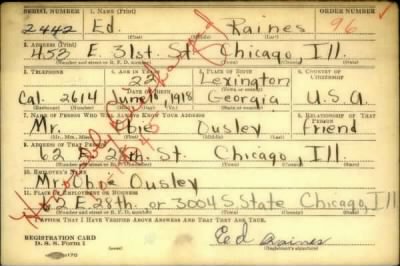 SERIAL NUMBER 1. NAME (Print) ORDER NUMBER
2442 Ed. Raines 96
(First) (Middle) (Last)
2. ADDRESS (Print)
453 E. 31st. St. Chicago, Ill.
(Number and street or R. F. D. number) (Town) (County) (State)
3. TELEPHONE 4. AGE IN YEARS 5. PLACE OF BIRTH 6. COUNTRY OF CITIZENSHIP
22 Lexington
DATE OF BIRTH
Cal. 2614 June 1, 1918 Georgia U.S.A.
7. NAME OF PERSON WHO WILL ALWAYS KNOW YOUR ADDRESS 8. RELATIONSHIP OF THAT PERSON
Mr. Obie Ousley friend
(Mr., Mrs., Miss) (First) (Middle) (Last)
9. ADDRESS OF THAT PERSON
62 28th St. Chicago, Ill.
(Number and street or R. F. D. number) (Town) (County) (State)
10. EMPLOYER'S NAME
Mr. Obie Ousley
11. PLACE OF EMPLOYMENT OR BUSINESS
62 E. 28th. or 3004 S State Chicago, Ill
(Number and street or R. F. D. number) (Town) (County) (State)
I AFFIRM THAT I HAVE VERIFIED ABOVE ANSWERS AND THAT THEY ARE TRUE.
REGISTRATION CARD
D. S. S. Form 1 Ed Raines
(Registrant's signature)